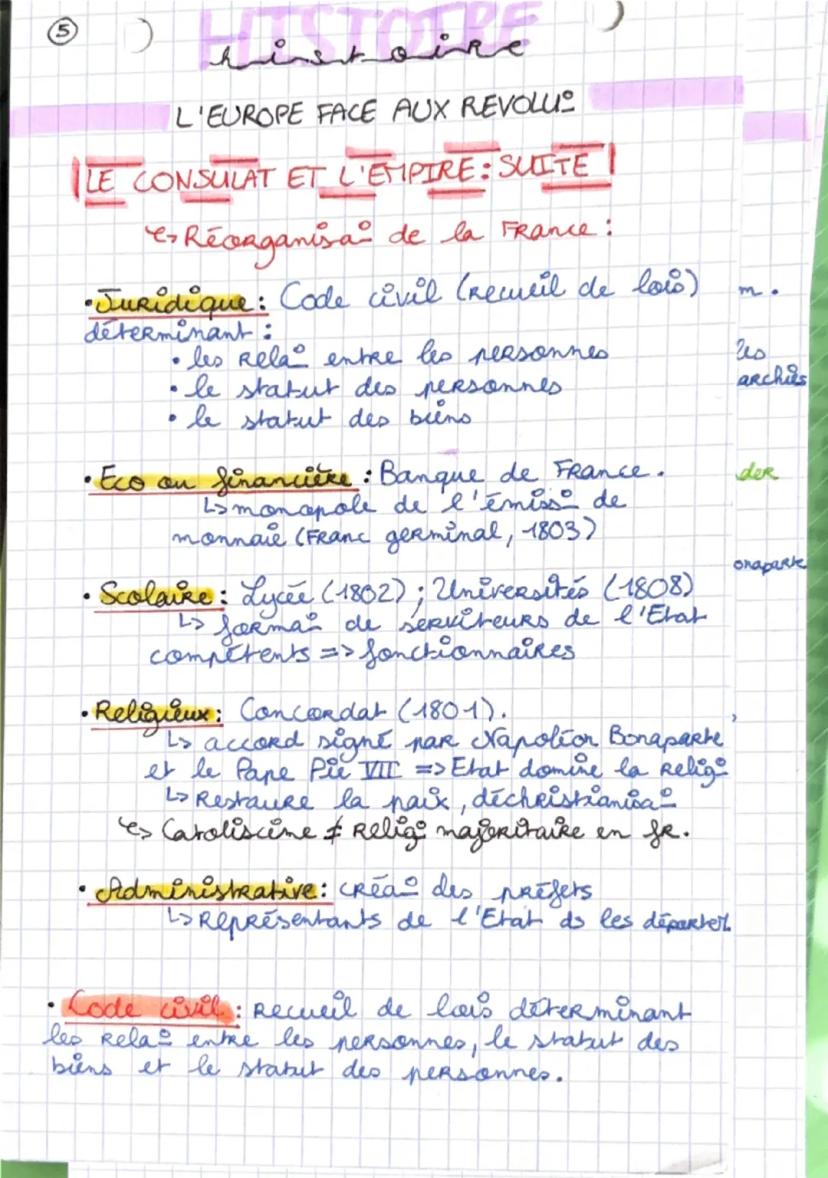 5
HISTOIRE
histoire
L'EUROPE FACE AUX REVOLU°
LE CONSULAT ET L'EMPIRE : SUITE
↳ Réorganisa° de la France :
• Juridique : Code civil (recueil de lois)
déterminant :
• les rela° entre les personnes
• le statut des personnes
• le statut des biens
• Eco ou financière : Banque de France.
↳ monopole de l'émiss° de
monnaie (Franc germinal, 1803)
• Scolaire : Lycée (1802) ; Universités (1808)
↳ forma° de serviteurs de l'Etat
compétents => fonctionnaires
• Religieux : Concordat (1801).
↳ accord signé par Napoléon Bonaparte
et le Pape Pie VII => Etat domine la relig°
↳ Restaure la paix, déchristianisa°
↳ Catoliscime ≠ relig° majoritaire en fr.
• Administrative : créa° des préfets
↳ Représentants de l'Etat ds les départe
• Code civil : recueil de lois déterminant
les rela° entre les personnes, le statut des
biens et le statut des personnes.
m.
les
archies
der
onaparte